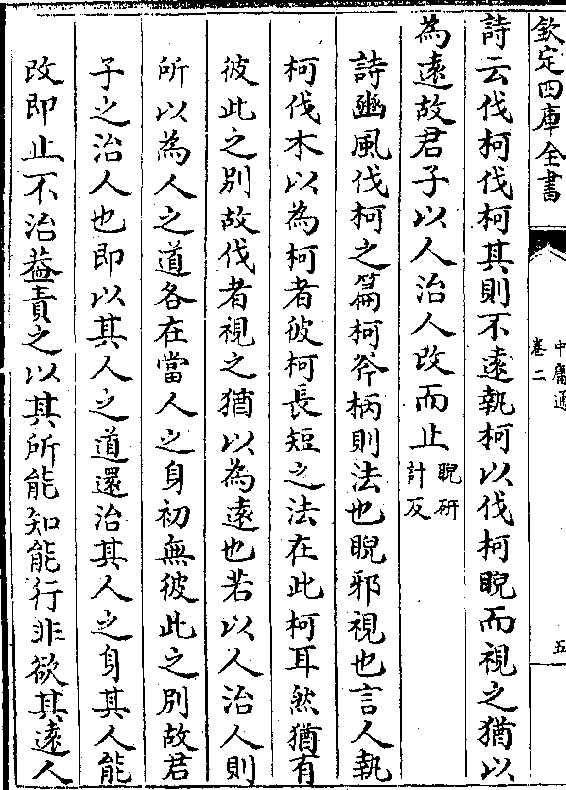 欽定四庫全書
中庸通
卷二
五
詩云伐柯伐柯其則不遠執柯以伐柯睨而視之猶以
為遠故君子以人治人改而止睨研計反
詩豳風伐柯之篇柯斧柄則法也睨邪視也言人執
柯伐木以為柯者彼柯長短之法在此柯耳然猶有
彼此之別故伐者視之猶以為遠也若以人治人則
所以為人之道各在當人之身初無彼此之別故君
子之治人也即以其人之道還治其人之身其人能
改即止不治葢責之以其所能知能行非欲其遠人